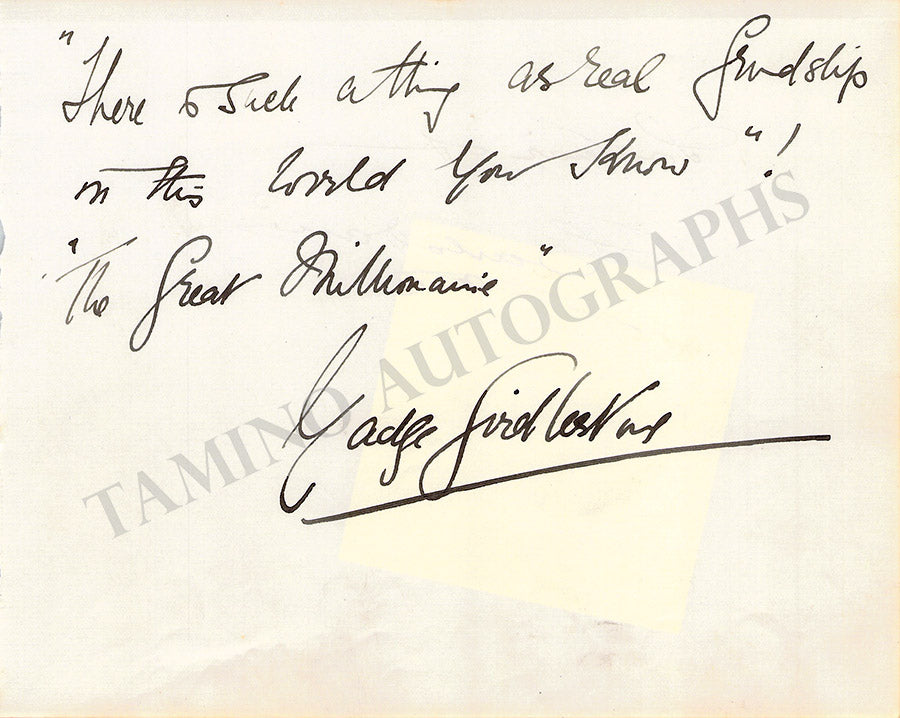 "There is Such a thing as real friendship
in this World You Know"!
"The Great Millionaire"
Madge Girdlestone
TAMINO AUTOGRAPHS